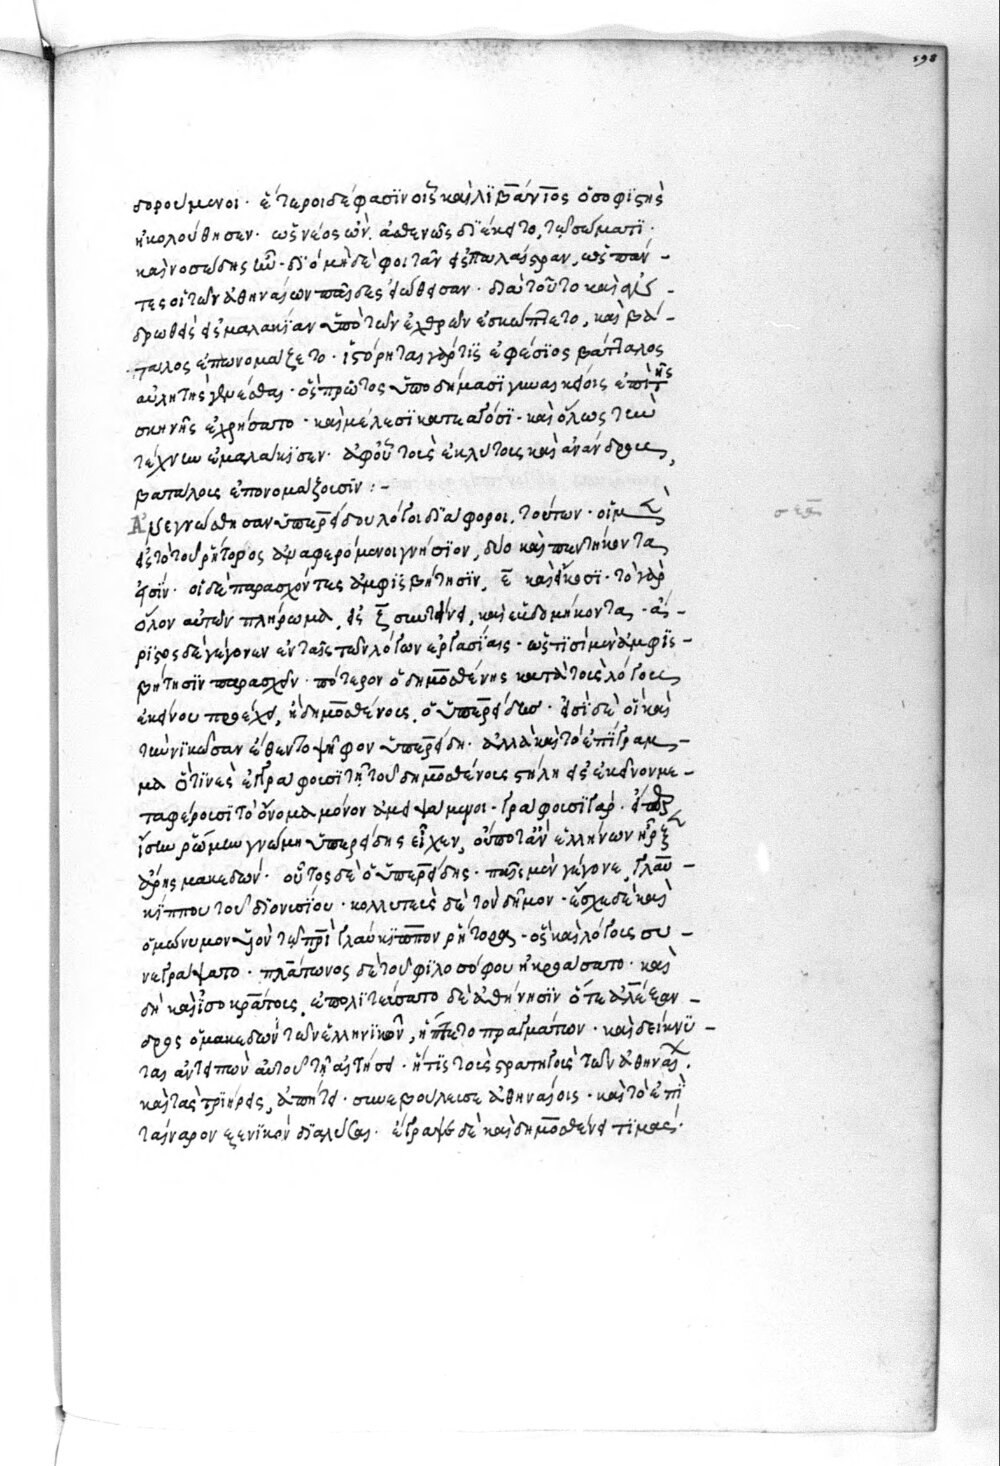 598
δορούμενοι· ἕτεροι δέ φασϊν οἷς καὶ λϊβάνϊος ὁ σοφϊστὴς
ἠκολούθησεν· ὡς νέος ὢν ἀσθενῶς δϊέκειτο, τῶ σώματϊ·
καὶ νοσώδης ὢν· δϊὸ μὴδὲ φοιτᾶν εἰς παλαίστραν, ὡς πάν-
τες οἱ τῶν ἀθηναίων παῖδες εἰώθεισαν· διὰ τοῦτο καὶ ἀν-
δρωθεὶς εἰς μαλακϊαν ὑπὸ τῶν ἐχθρῶν ἐσκώπτετο, καὶ βά-
ταλος ἐπωνομάζετο· ἱστόρηται γάρ τϊς ἐφέσϊος βάταλος
αὐλητὴς γενέσθαι· ὃς πρῶτος ὑποδήμασϊ γυναικείοις ἐπὶ τῆς
σκηνῆς ἐχρήσατο· καὶ μέλεσϊ κατεαγόσϊ· καὶ ὅλως τὴν
τέχνην ἐμαλάκϊσεν· ἀφ' οὗ τοὺς ἐκλύτους καὶ ἀνάνδρους,
βατάλους ἐπονομάζουσϊν :-
Ἀνεγνώσθησαν ὑπερείδου λόγοι δϊάφοροι, τούτων· οἱ μὲν
εἰς τὸ τοῦ ῥήτορος ἀναφερόμενοι γνήσϊον, δύο καὶ πεντήκοντα
εἰσϊν· οἱ δὲ παρασχόντες ἀμφισβήτησϊν, ε καὶ εἴκοσϊ· τὸ γὰρ
ὅλον αὐτῶν πλήρωμα, εἰς ζ συντείνει, καὶ εὐδομήκοντα· ἄ-
ρϊστος δὲ γέγονεν ἐν ταῖς τῶν λόγων ἐργασίαις· ὥς τϊσϊ μὲν ἀμφϊς-
βήτησϊν παρασχεῖν· πότερον ὁ δημοσθένης κατὰ τοὺς λόγους
ἐκείνου προέχει, ἢ δημοσθένους, ὁ ὑπερείδης· εἰσὶ δὲ οἳ καὶ
τὴν νϊκῶσαν ἔθεντο ψῆφον ὑπερείδη· ἀλλὰ καὶ τὸ ἐπϊγραμ-
μα ὅ τϊνὲς ἐπϊγράφουσϊ τῆ τοῦ δημοσθένους στήλη εἰς ἐκεῖνον με-
ταφέρουσϊ τὸ ὄνομα μόνον ἀμείψαμενοι· γράφουσϊ γάρ· εἴπερ
ἴσην ῥώμην γνώμη ὑπερείδης εἶχεν, οὔποτ' ἂν ἑλλήνων ἦρξεν
ἄρης μακεδών· οὗτος δὲ ὁ ὑπερείδης· παῖς μὲν γέγονε, γλαυ
κίππου τοῦ δϊονυσίου· κολλυτεὺς δὲ τὸν δῆμον· ἔσχε δὲ καὶ
ὁμώνυμον υἱὸν τῶ πατρὶ γλαύκϊππον ῥήτορα· ὃς καὶ λόγους συ-
νεγράψατο· πλάτωνος δὲ τοῦ φϊλοσόφου ἠκροάσατο· καὶ
δὴ καὶ ἰσοκράτους, ἐπολϊτεύσατο δὲ ἀθήνησϊν ὅτε ἀλέξαν-
δρος ὁ μακεδὼν τῶν ἑλληνϊκῶν, ἥπτετο πραγμάτων· καὶ δείκνϋ-
ται ἀντειπὼν αὐτοῦ τῆ αἰτήσει· ἥτϊς τοὺς στρατηγοὺς τῶν ἀθηναίων·
καὶ τὰς τρϊήρεις, ἀπήτει· συνεβούλευσε ἀθηναίοις· καὶ τὸ ἐπὶ
ταίναρον ξενϊκὸν δϊαλῦσαι· ἔγραψε δὲ καὶ δημοσθένει τϊμάς·